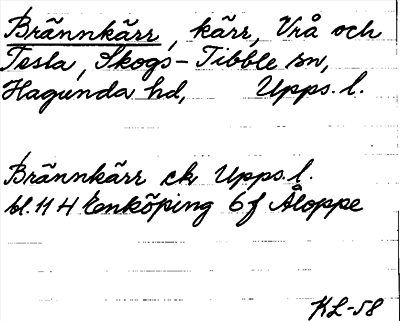 Brännkärr, kärr, Vrå och
Tesla, Skogs-Tibble sn,
Hagunda hd, Upps. l.
Brännkärr ek Upps. l.
bl. 114 Enköping 6f Åloppe
KL-58